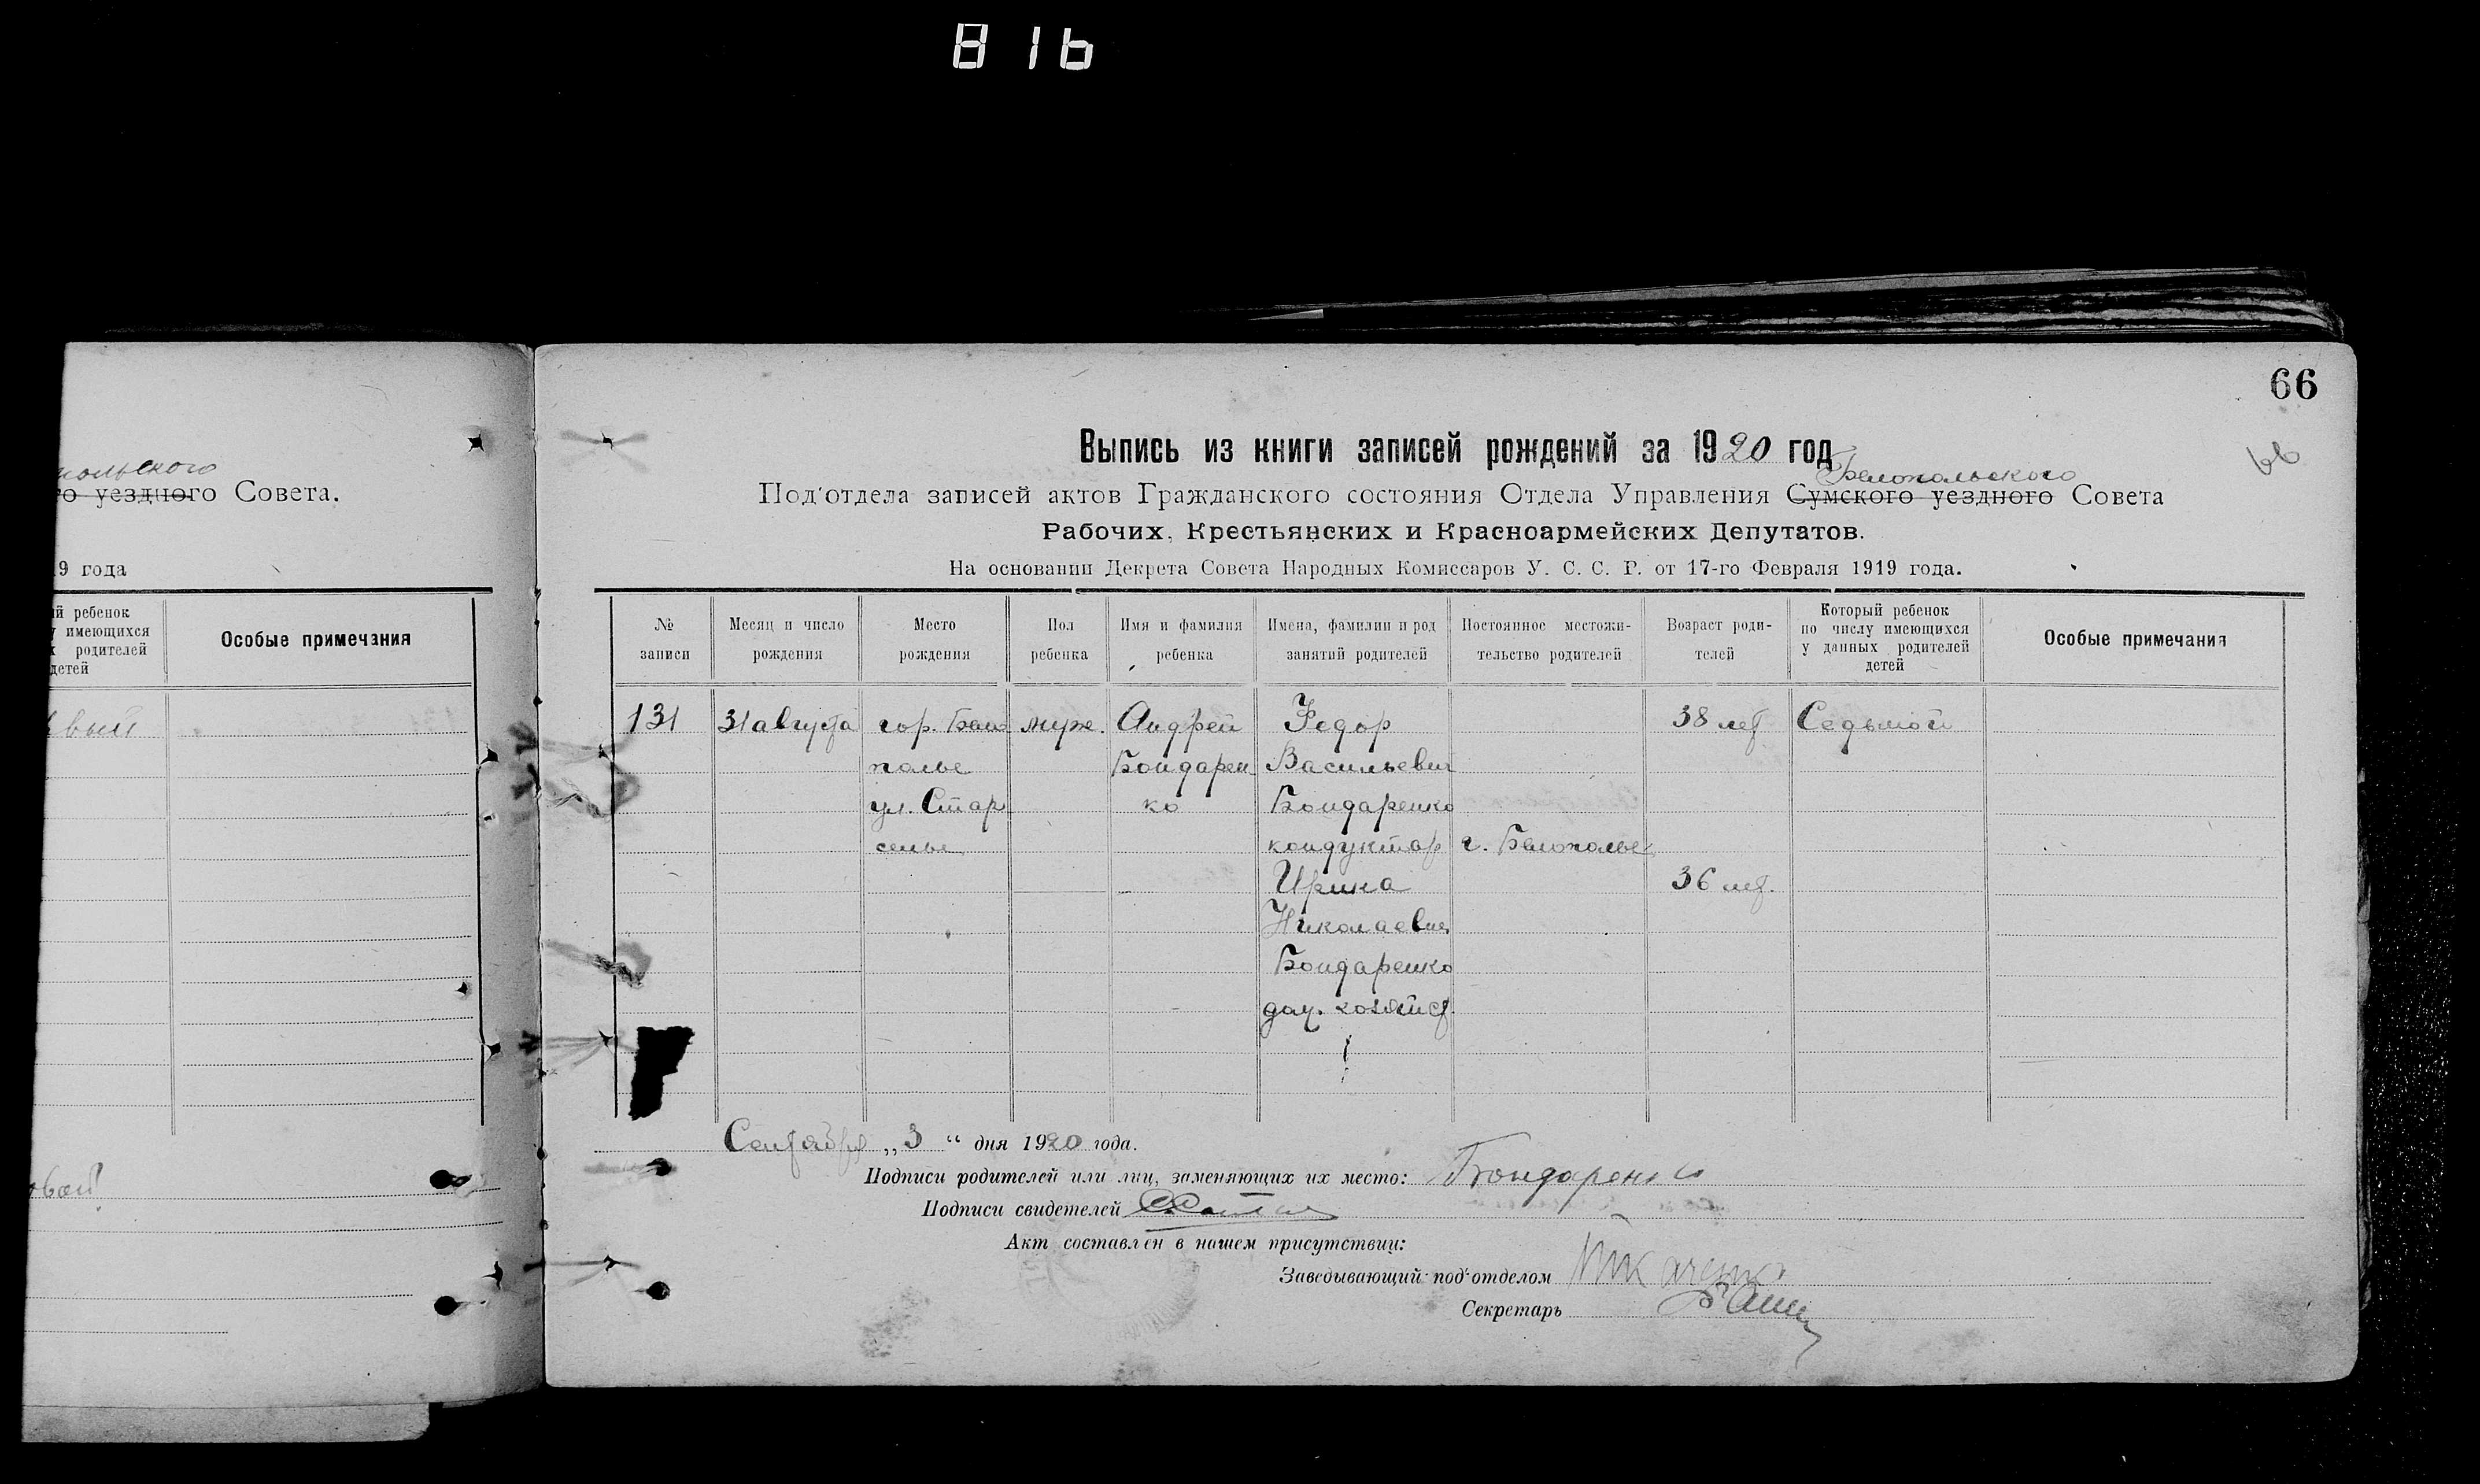 816
66
66
польского
го уездного Совета.
9 года
й ребенок
у имеющихся
х родителей
детей
Особые примечания
вый
Выпись из книги записей рождений за 1920 год
Белопольского
Под'отдела записей актов Гражданского состояния Отдела Управления Сумского уездного Совета
Рабочих, Крестьянских и Красноармейских Депутатов.
На основании Декрета Совета Народных Комиссаров У. С. С. Р. от 17-го Февраля 1919 года.
№ записи
Месяц и число рождения
Место рождения
Пол ребенка
Имя и фамилия ребенка
Имена, фамилии и род занятий родителей
Постоянное местожи-тельство родителей
Возраст роди-телей
Который ребенок по числу имеющихся у данных родителей детей
Особые примечания
131 31 августа гор. Бело муж. Андрей Федор 38 лет Седьмой
полье Бондарен Васильевич
ул. Стар ко Бондаренко
селье кондуктор г. Белополье
Ирина 36 лет.
Николаевна
Бондаренко
дом. хозяйст.
Сентября „3“ дня 1920 года.
Подписи родителей или лиц, заменяющих их место: Бондаренко
Подписи свидетелей
Акт составлен в нашем присутствии:
Заведывающий под'отделом Ткаченко
Секретарь